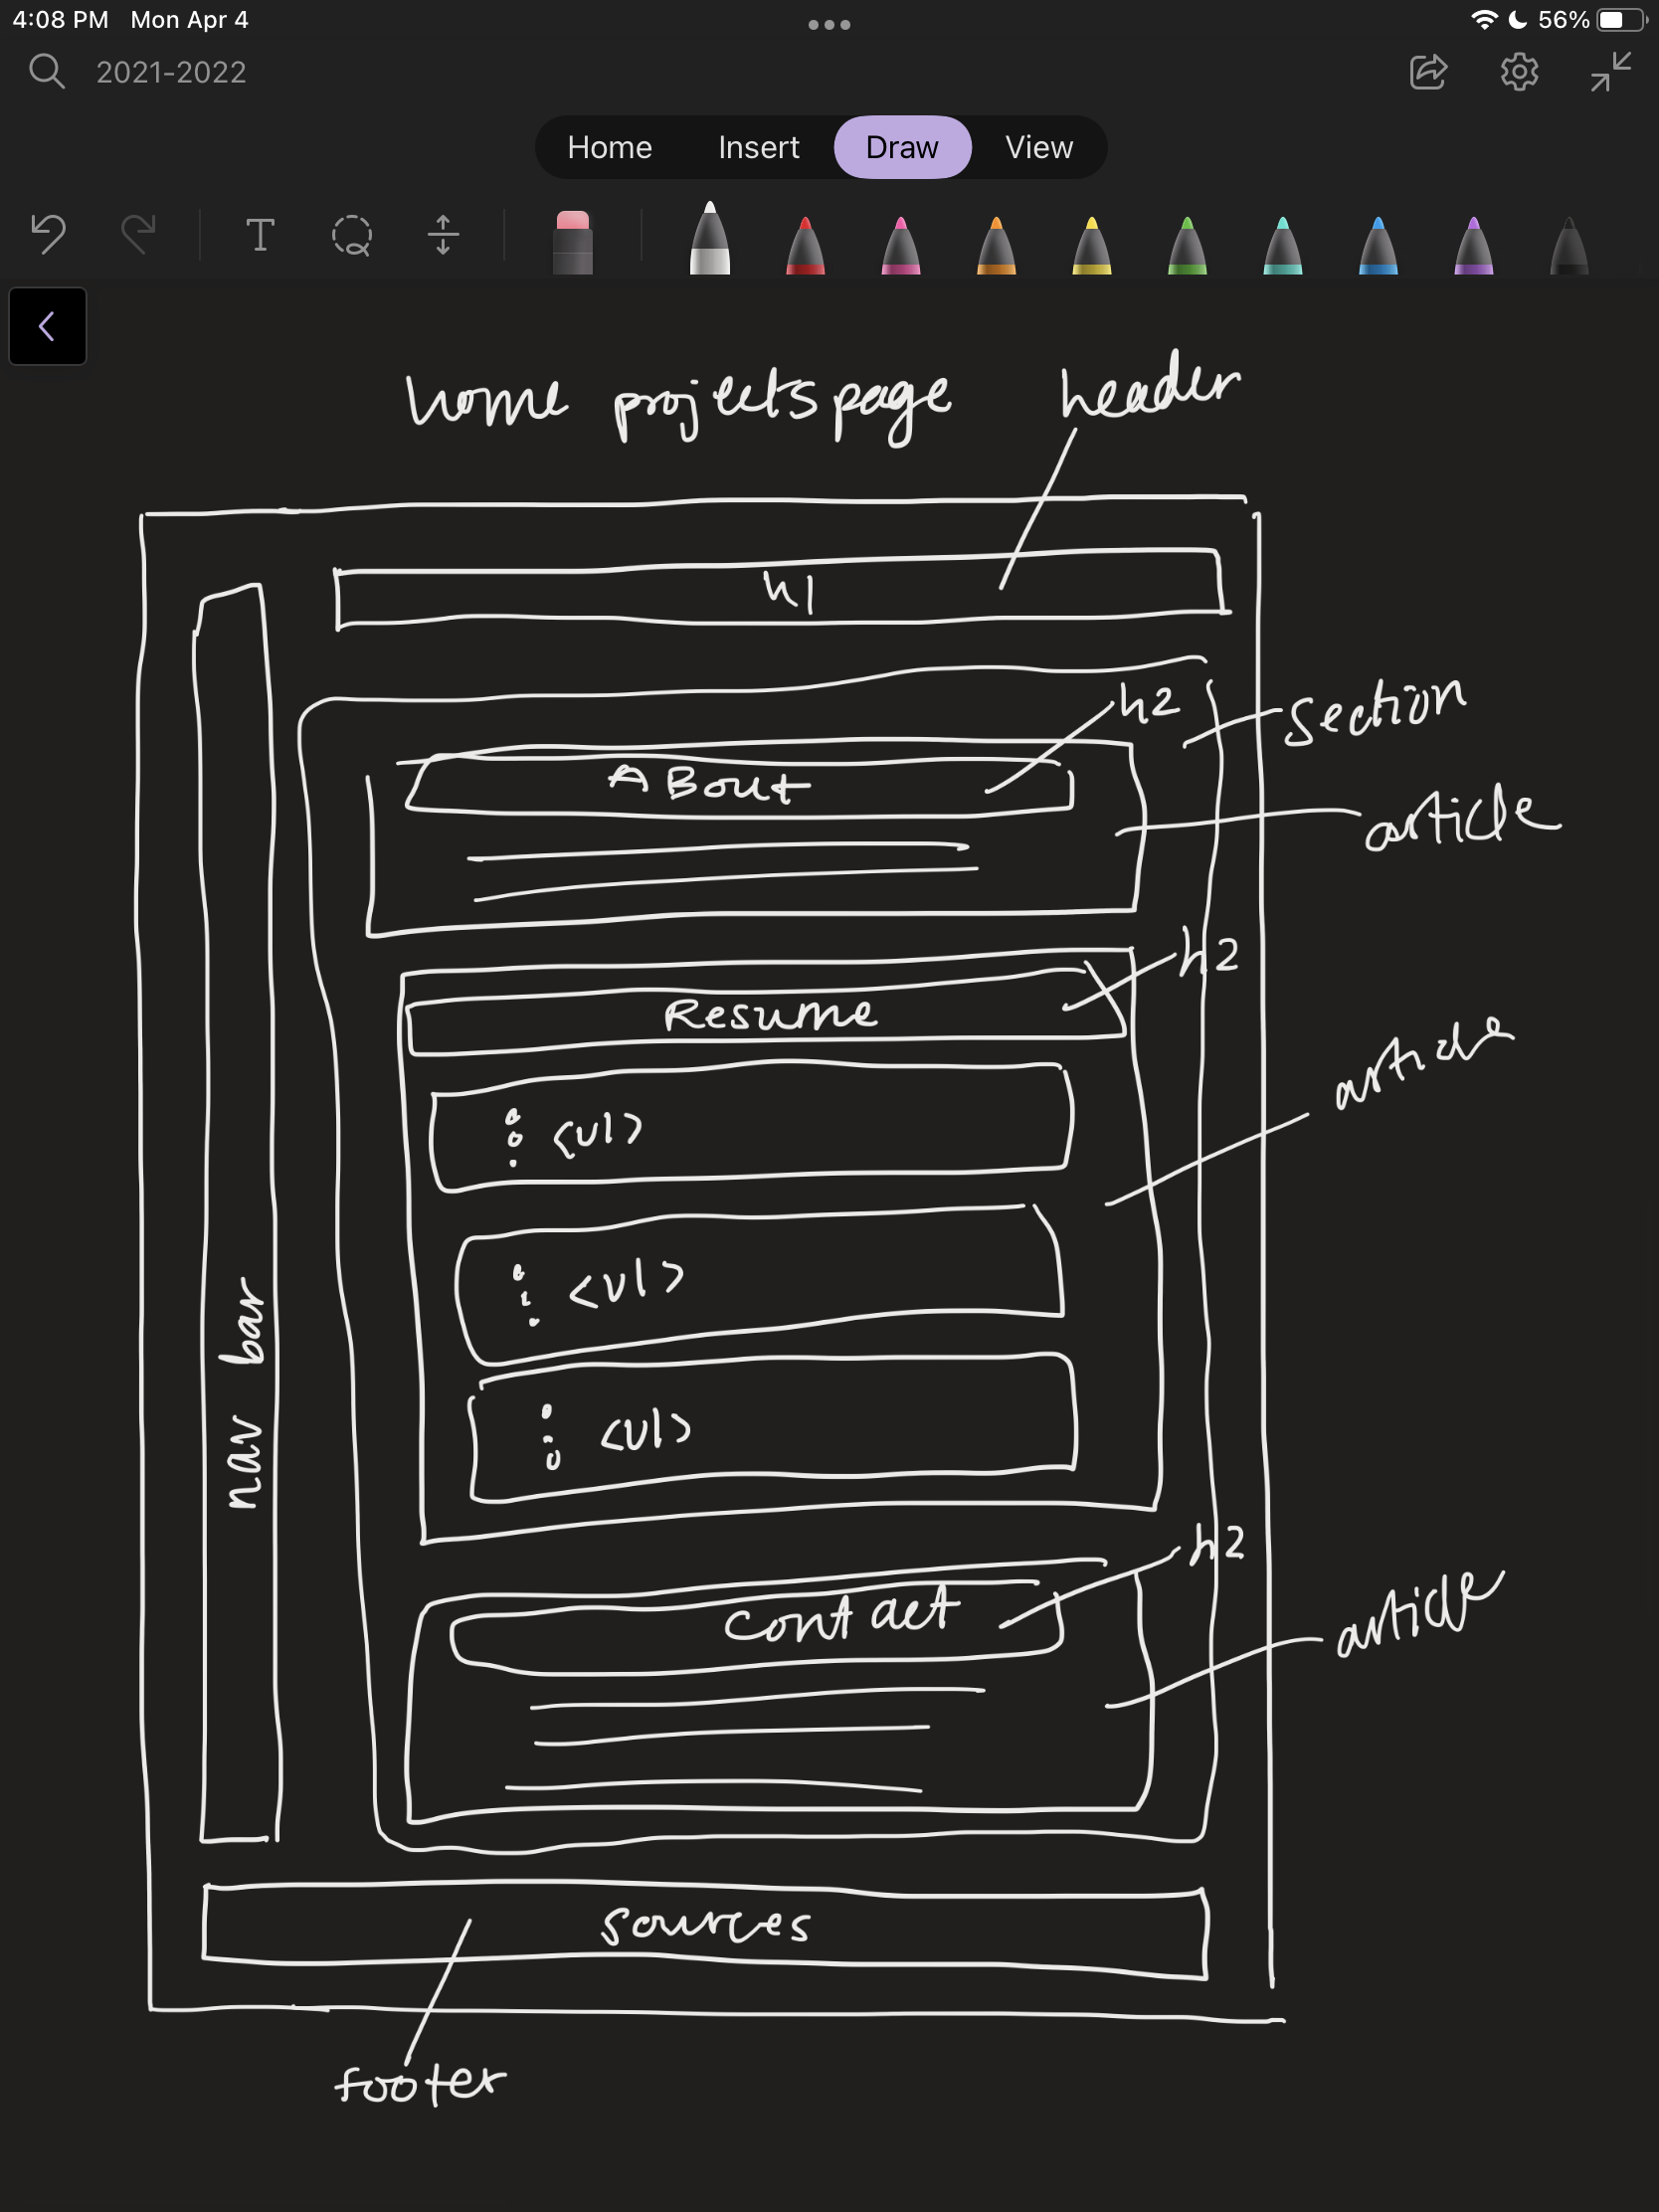 4:08 PM Mon Apr 4
56%
2021-2022
Home Insert Draw View
T
home projects page header
h1
h2
section
About
article
h2
Resume
article
<ul>
<ul>
<ul>
nav bar
h2
contact
article
sources
footer